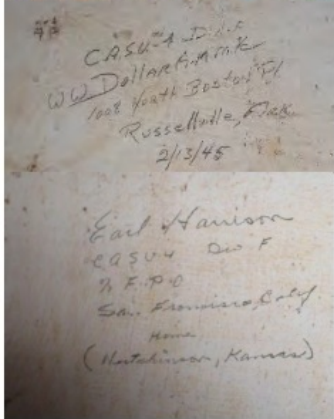 C.A.S.U.-4 Div F
W.W. Dollar A.M.M.
1008 South Boston Pl
Russellville, Ark.
2/13/45
Earl Harrison
CASU 4 Div F
% F.P.O
San Francisco, Calif
Home
(Hutchinson, Kansas)